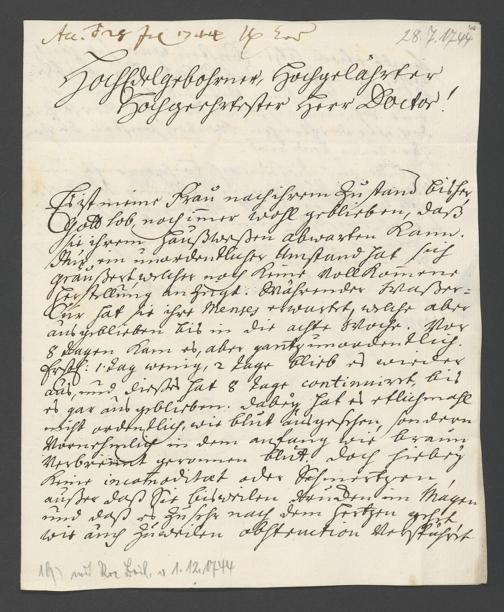 28.7.1744
HochEdelgebohrner, Hochgelährter
Hochgeehrtester Herr Doctor!
Es ist meine Frau nach ihrem Zustand bisher,
Gott lob, noch imer wohl geblieben, daß
sie ihrem Haußweßen abwarten kann.
Nur ein unordentlicher Umstand hat sich
geäußert, welcher noch keine vollkom̅ene
Herstellung anzeigt. Währender Waßer=
Cur hat sie ihre Menses erwartet, welche aber
ausgeblieben bis in die achte Woche. Vor
8 Tagen kam es, aber gantz unordentlich.
Erstl: 1 Tag wenig, 2 Tage blieb es wieder
aus, und dießes hat 8 Tage continuirt, bis
es gar ausgeblieben. Dabey hat es etlichmahl
nicht ordentlich, wie blut ausgesehen, sondern
Vornehmlich in dem anfang wie braun
Verbrennt geronnen blut. Doch hiebey
keine incomoditat oder Schmertzen,
außer daß Sie bisweilen im Magen
und daß es zu sehr nach dem Hertzen gehet
wie auch zuweilen obstruction verspühret
1.12.1744